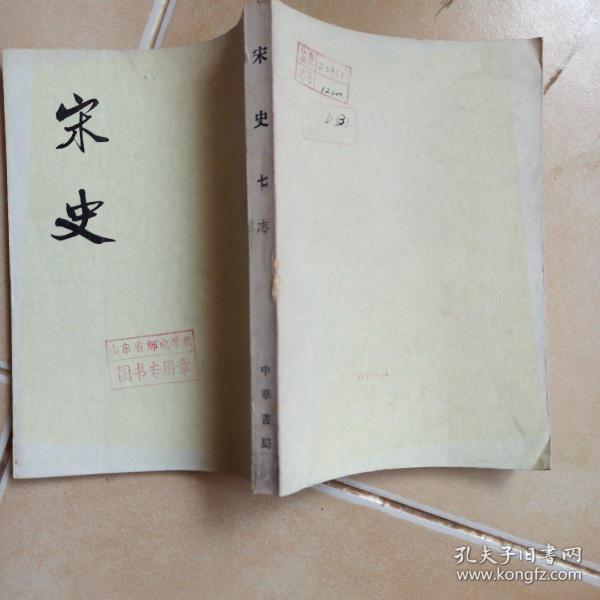 宋史
宋史 七 志
中華書局
山东省邮电学校
图书专用章
孔夫子旧書网
www.kongfz.com